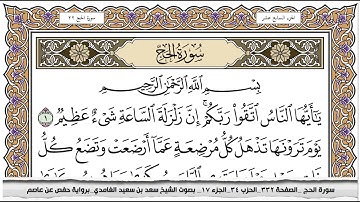 الجزء السابع عشر
سورة الحج ٢٢
سُورَةُ الحَجِّ
بِسْمِ ٱللَّهِ ٱلرَّحْمَٰنِ ٱلرَّحِيمِ
يَٰٓأَيُّهَا ٱلنَّاسُ ٱتَّقُوا۟ رَبَّكُمْ ۚ إِنَّ زَلْزَلَةَ ٱلسَّاعَةِ شَىْءٌ عَظِيمٌ ١
يَوْمَ تَرَوْنَهَا تَذْهَلُ كُلُّ مُرْضِعَةٍ عَمَّآ أَرْضَعَتْ وَتَضَعُ كُلُّ
سورة الحج _الصفحة ٣٣٢_الحزب ٣٤_الجزء ١٧_ بصوت الشيخ سعد بن سعيد الغامدي_برواية حفص عن عاصم